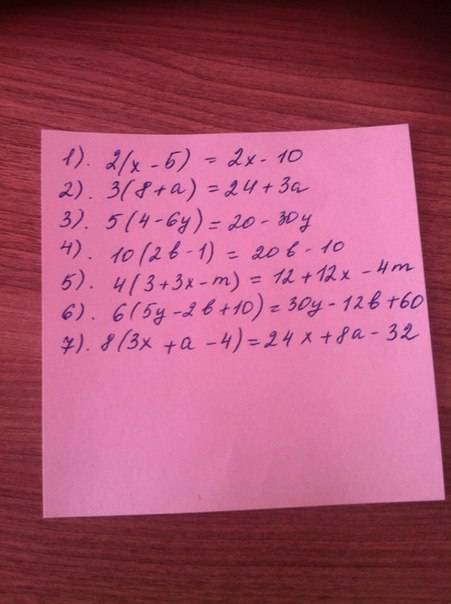 1). 2(x - 5) = 2x - 10
2). 3(8 + a) = 24 + 3a
3). 5(4 - 6y) = 20 - 30y
4). 10(2в - 1) = 20в - 10
5). 4(3 + 3x - m) = 12 + 12x - 4m
6). 6(5y - 2в + 10) = 30y - 12в + 60
7). 8(3x + a - 4) = 24x + 8a - 32